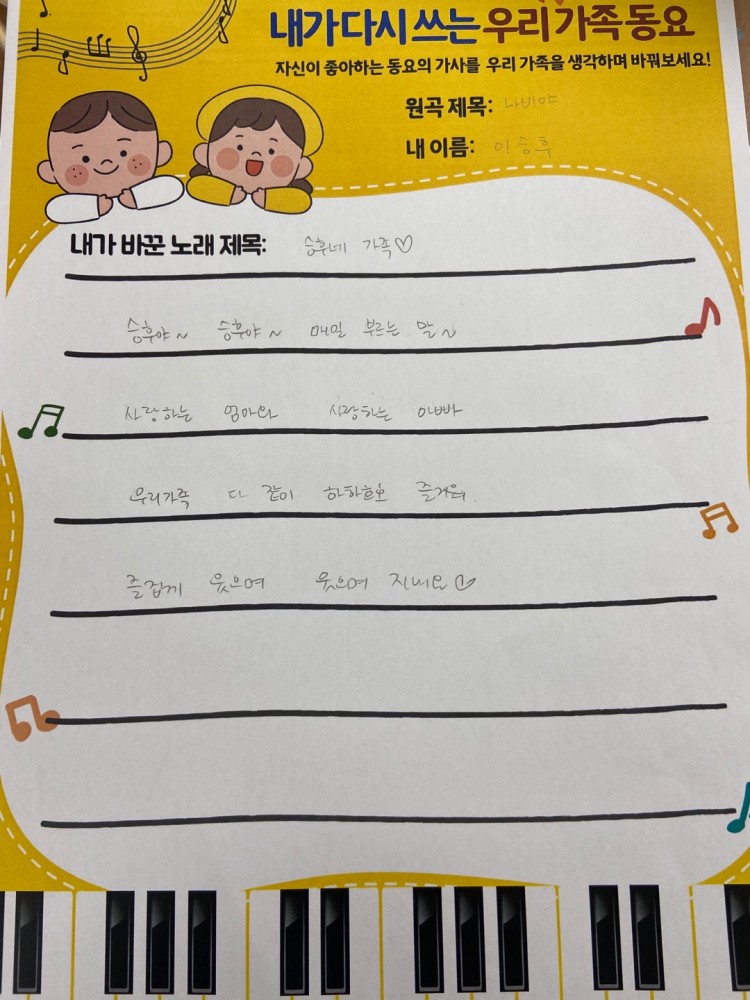 내가 다시 쓰는 우리 가족 동요
자신이 좋아하는 동요의 가사를 우리 가족을 생각하며 바꿔보세요!
원곡 제목: 나비야
내 이름: 이승후
내가 바꾼 노래 제목: 승후네 가족♡
승후야~ 승후야~ 매일 부르는 말~
사랑하는 엄마와 사랑하는 아빠
우리가족 다 같이 하하호호 즐거워.
즐겁게 웃으며 웃으며 지내요♡